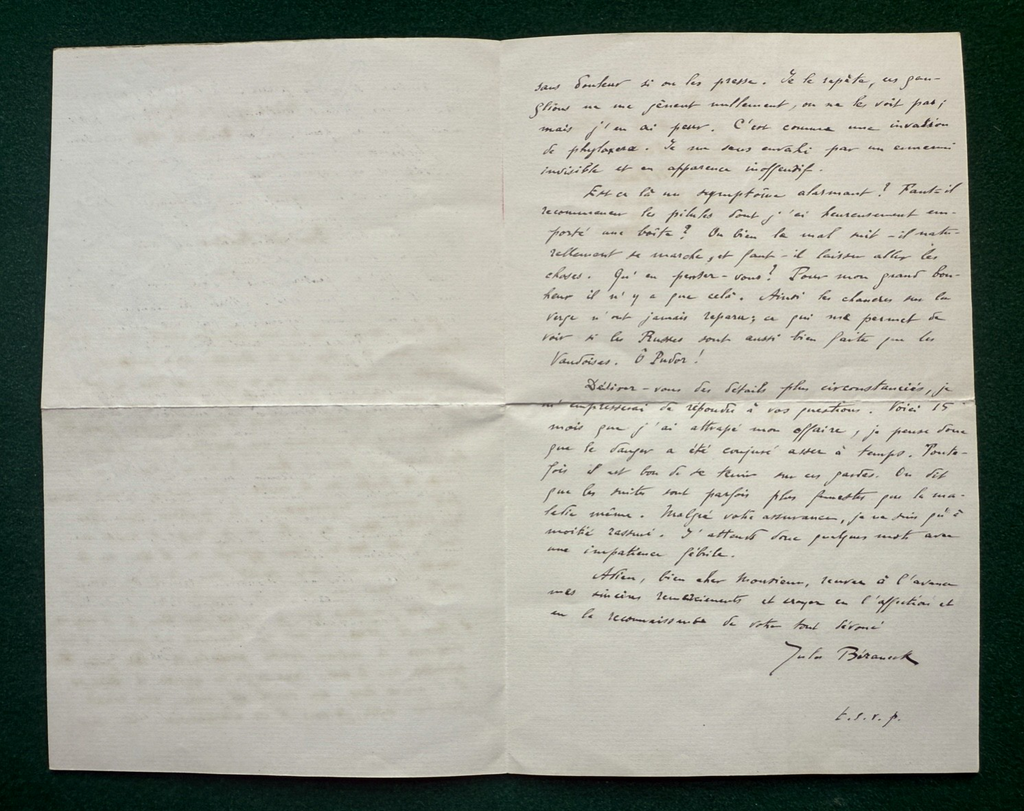 sans douleur si on les presse. Je le repète, ces gan-
glions ne me gênent nullement, on ne les voit pas;
mais j'en ai peur. C'est comme une invasion
de phyloxera. Je me sens envahi par un ennemi
invisible et en apparence inoffensif.
Est-ce là un symptôme alarmant? Faut-il
recommencer les pilules dont j'ai heureusement em-
porté une boîte? Ou bien le mal suit-il natu-
rellement sa marche, et faut-il laisser aller les
choses. Qu'en pensez-vous? Pour mon grand bon-
heur il n'y a que cela. Ainsi les chancres sur la
verge n'ont jamais reparu; ce qui me permet de
voir si les Russes sont aussi bien faites que les
Vaudoises. Ô Pudor!
Désirez-vous des détails plus circonstanciés, je
m'empresserai de répondre à vos questions. Voici 15
mois que j'ai attrapé mon affaire, je pense donc
que le danger a été conjuré assez à temps. Toute-
fois il est bon de se tenir sur ses gardes. On dit
que les suites sont parfois plus funestes que la ma-
ladie même. Malgré votre assurance, je ne suis qu'à
moitié rassuré. J'attends donc quelques mots avec
une impatience fébrile.
Adieu, bien cher Monsieur, recevez à l'avance
mes sincères remerciements et croyez en l'affection et
en la reconnaissance de votre tout dévoué
Jules Béraneck
t.s.v.p.